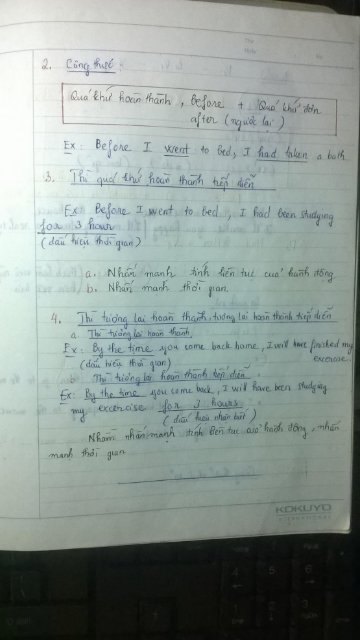 2. Công thức
Quá khứ hoàn thành, before + Quá khứ đơn
after (ngược lại)
Ex: Before I went to bed, I had taken a bath
3. Thì quá khứ hoàn thành tiếp diễn
Ex Before I went to bed, I had been studying
for 3 hour
(dấu hiệu thời gian)
a. Nhấn mạnh tính liên tục của hành động.
b. Nhấn mạnh thời gian.
4. Thì tương lai hoàn thành, tương lai hoàn thành tiếp diễn
a. Thì tương lai hoàn thành,
Ex: By the time you come back home, I will have finished my
exercise.
(dấu hiệu thời gian)
b. Thì tương lai hoàn thành tiếp diễn.
Ex: By the time you come back, I will have been studying
my exercise for 3 hours
(dấu hiệu nhận biết)
Nhằm nhấn mạnh tính liên tục của hành động, nhấn
mạnh thời gian
KOKUYO